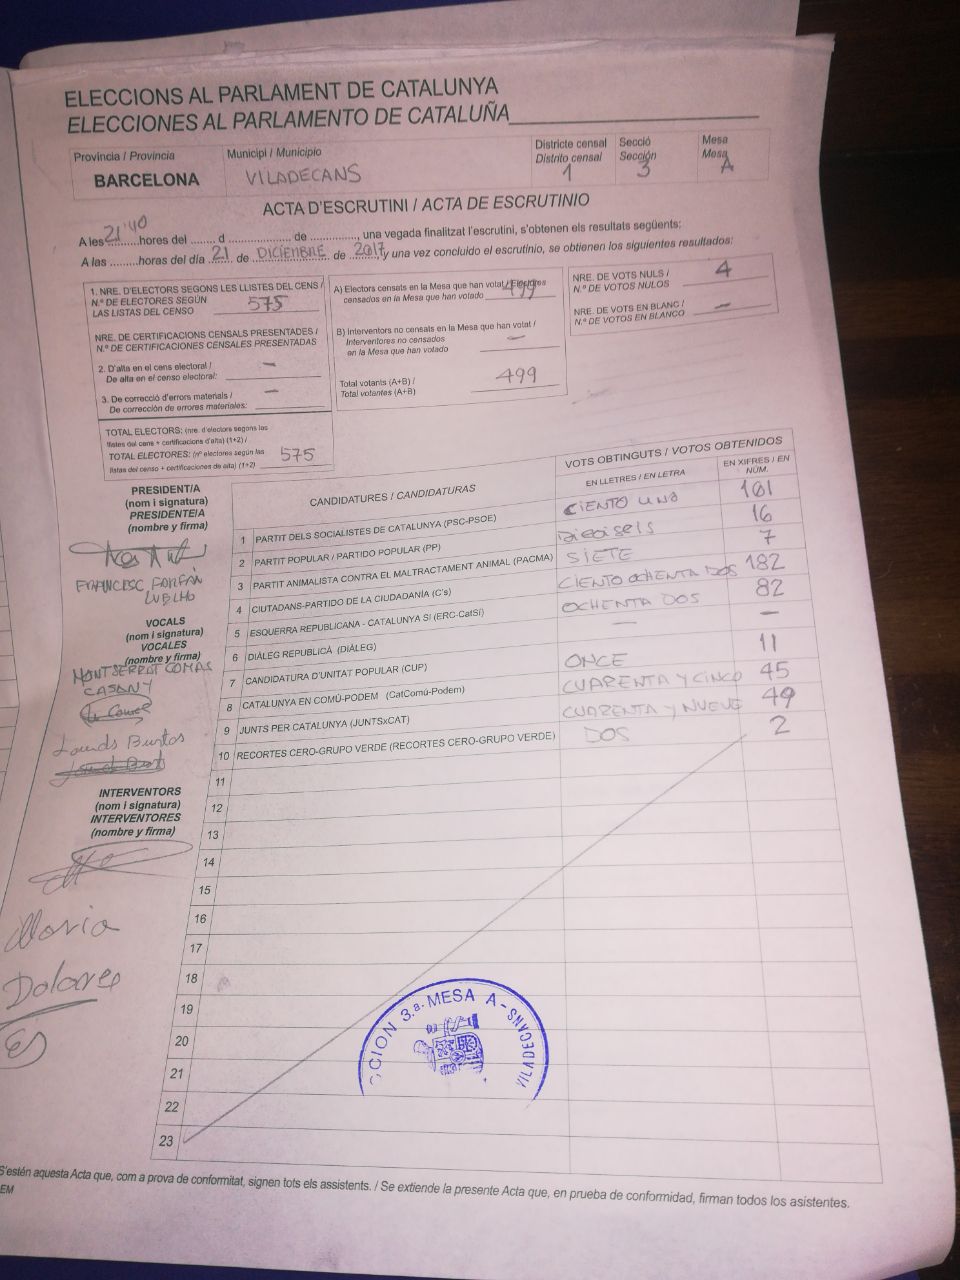 ELECCIONS AL PARLAMENT DE CATALUNYA
ELECCIONES AL PARLAMENTO DE CATALUÑA
Província / Provincia
BARCELONA
Municipi / Municipio
VILADECANS
Districte censal
Distrito censal
1
Secció
Sección
3
Mesa
Mesa
A
ACTA D'ESCRUTINI / ACTA DE ESCRUTINIO
A les 21'40 hores del ........ d ..................... de ..............., una vegada finalitzat l'escrutini, s'obtenen els resultats següents:
A las .........horas del día 21 de DICIEMBRE de 2017, y una vez concluido el escrutinio, se obtienen los siguientes resultados:
1. NRE. D'ELECTORS SEGONS LES LLISTES DEL CENS /
N.º DE ELECTORES SEGÚN
LAS LISTAS DEL CENSO 575
NRE. DE CERTIFICACIONS CENSALS PRESENTADES /
N.º DE CERTIFICACIONES CENSALES PRESENTADAS
2. D'alta en el cens electoral /
De alta en el censo electoral: –
3. De correcció d'errors materials /
De corrección de errores materiales: –
TOTAL ELECTORS: (nre. d'electors segons les
llistes del cens + certificacions d'alta) (1+2) /
TOTAL ELECTORES: (nº electores según las
listas del censo + certificaciones de alta) (1+2) 575
A) Electors censats en la Mesa que han votat / Electores
censados en la Mesa que han votado 499
B) Interventors no censats en la Mesa que han votat /
Interventores no censados
en la Mesa que han votado –
Total votants (A+B) /
Total votantes (A+B) 499
NRE. DE VOTS NULS /
N.º DE VOTOS NULOS 4
NRE. DE VOTS EN BLANC /
N.º DE VOTOS EN BLANCO –
PRESIDENT/A
(nom i signatura)
PRESIDENTE/A
(nombre y firma)
FRANCESC FARFÁN
VOCALS
(nom i signatura)
VOCALES
(nombre y firma)
MONTSERRAT COMAS
CASANY
Lourdes Bustos
INTERVENTORS
(nom i signatura)
INTERVENTORES
(nombre y firma)
Maria
Dolores
CANDIDATURES / CANDIDATURAS
VOTS OBTINGUTS / VOTOS OBTENIDOS
EN LLETRES / EN LETRA
EN XIFRES / EN
NÚM.
1 PARTIT DELS SOCIALISTES DE CATALUNYA (PSC-PSOE) CIENTO UNO 101
2 PARTIT POPULAR / PARTIDO POPULAR (PP) DIECISEIS 16
3 PARTIT ANIMALISTA CONTRA EL MALTRACTAMENT ANIMAL (PACMA) SIETE 7
4 CIUTADANS-PARTIDO DE LA CIUDADANÍA (C's) CIENTO OCHENTA DOS 182
5 ESQUERRA REPUBLICANA - CATALUNYA SÍ (ERC-CatSí) OCHENTA DOS 82
6 DIÀLEG REPUBLICÀ (DIÀLEG) — –
7 CANDIDATURA D'UNITAT POPULAR (CUP) ONCE 11
8 CATALUNYA EN COMÚ-PODEM (CatComú-Podem) CUARENTA Y CINCO 45
9 JUNTS PER CATALUNYA (JUNTSxCAT) CUARENTA Y NUEVE 49
10 RECORTES CERO-GRUPO VERDE (RECORTES CERO-GRUPO VERDE) DOS 2
11
12
13
14
15
16
17
18
19
20
21
22
23
CCION 3.ª- MESA A - VILADECANS
S'estén aquesta Acta que, com a prova de conformitat, signen tots els assistents. / Se extiende la presente Acta que, en prueba de conformidad, firman todos los asistentes.
EM